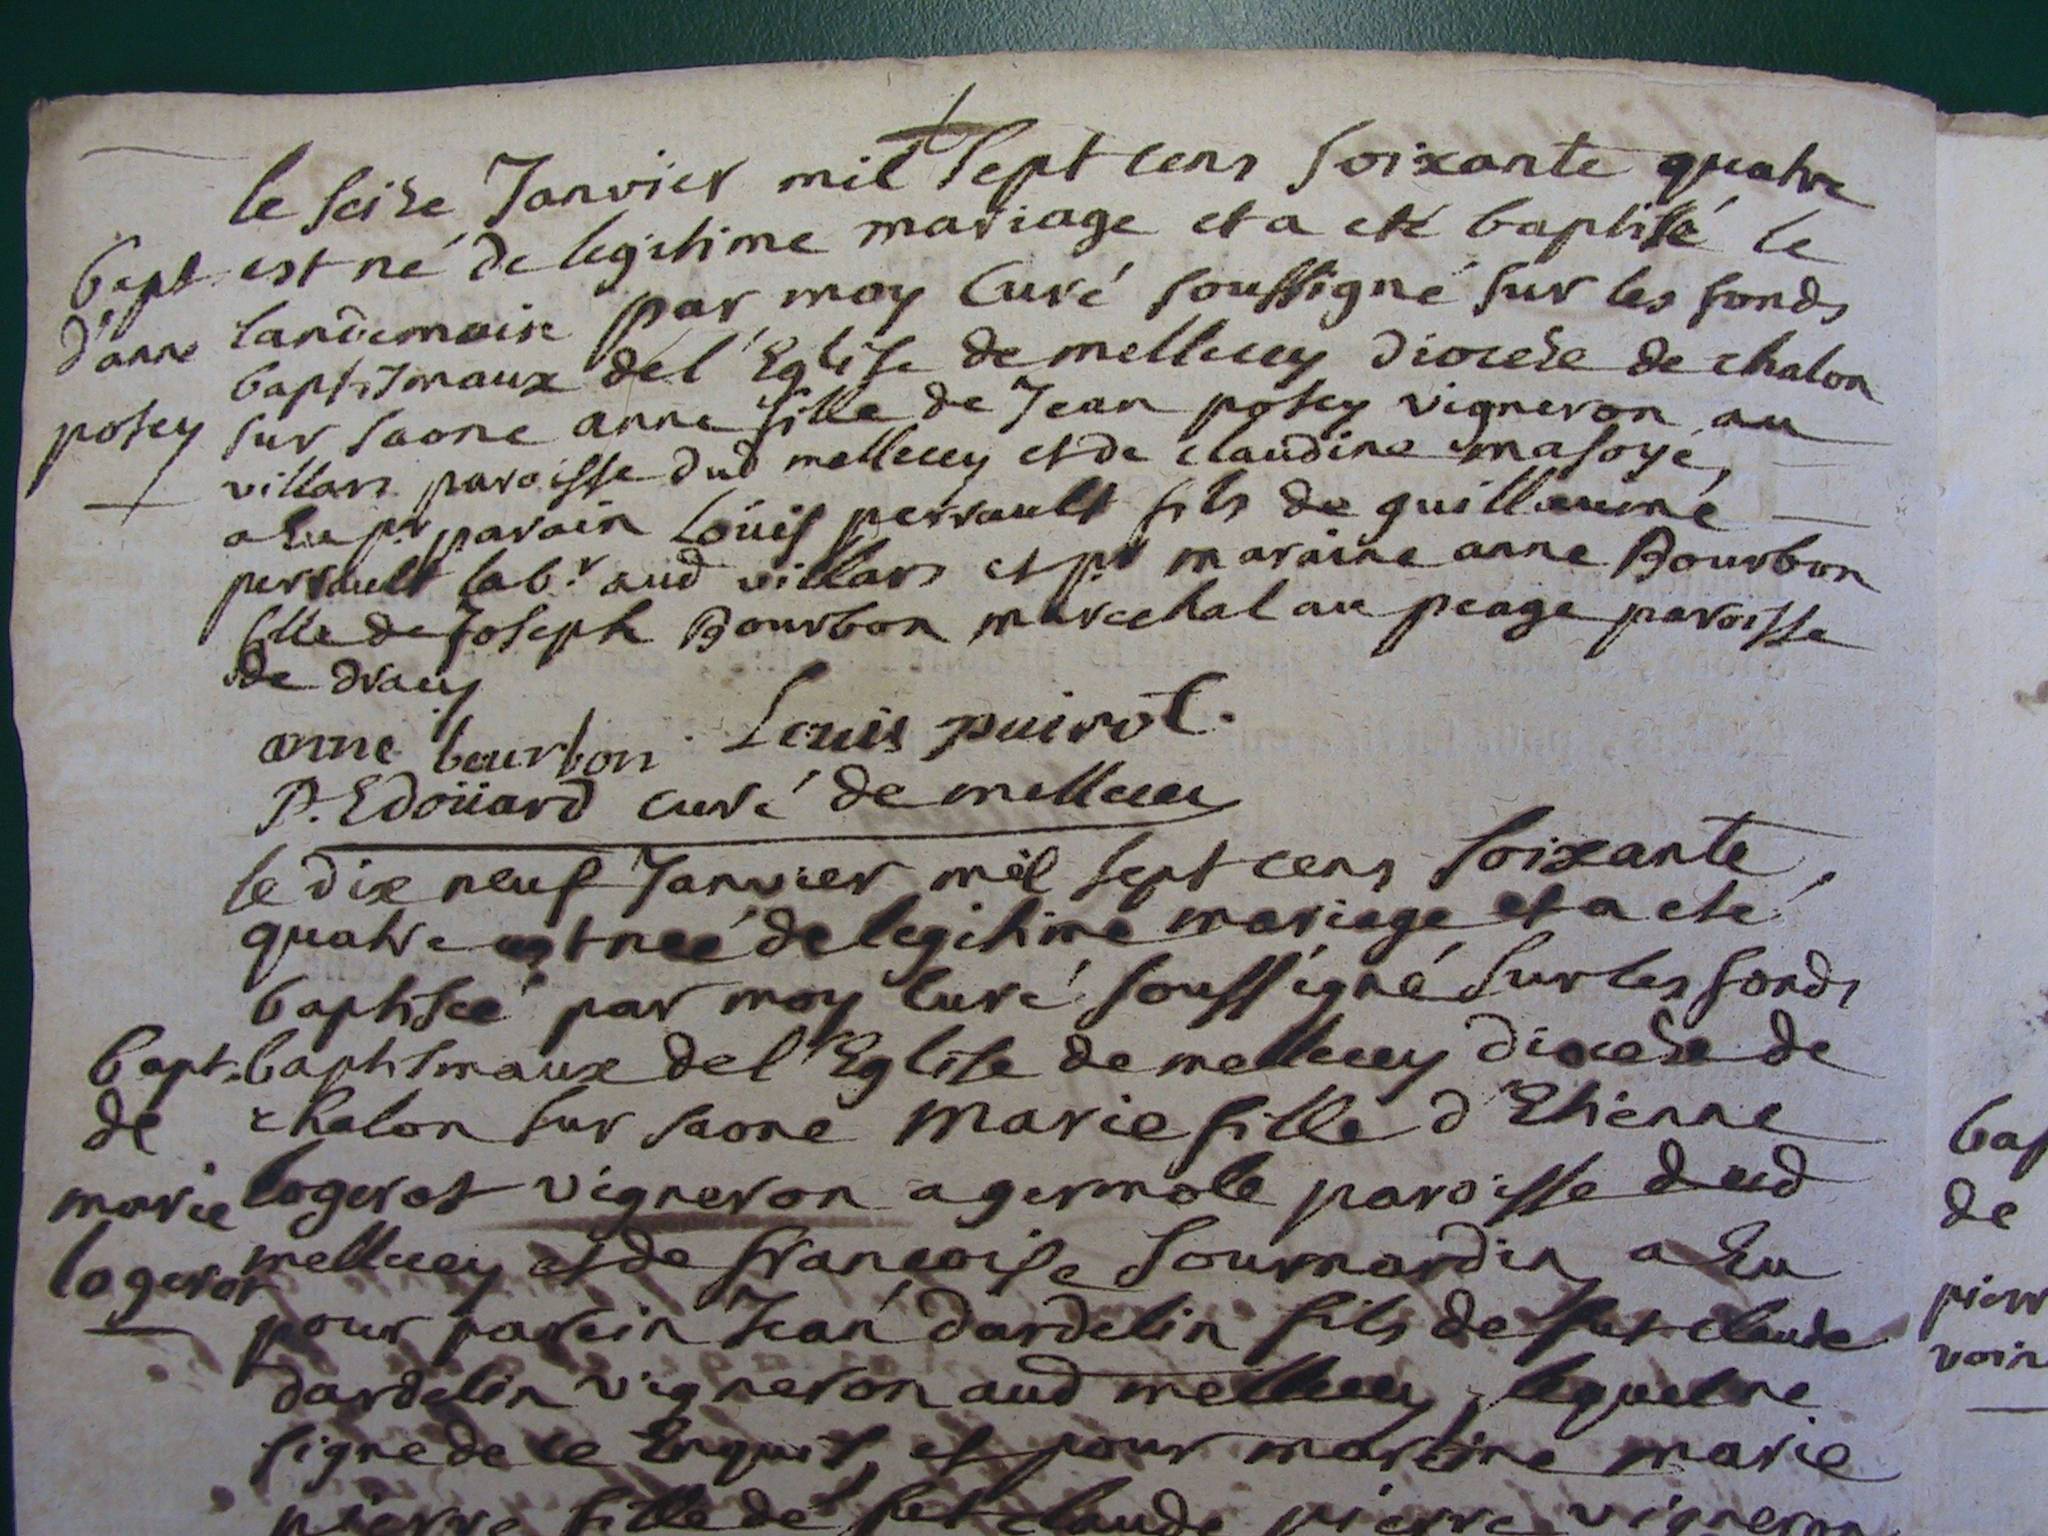 le seize Janvier mil sept cens soixante quatre
est né de legitime mariage et a eté baptisé le
landemain par moy Curé soussigné sur les fonds
baptismaux de l'Eglise de mellecey diocèze de chalon
sur saone anne fille de Jean posey vigneron au
villars paroisse dud mellecey et de claudine masoyé,
a Eu pr parain Loüis perrault fils de guillaume
perrault labr aud villars et pr maraine anne Bourbon
fille de Joseph Bourbon marechal au peage paroisse
de dracy
Bapt
d'anne
posey
anne bourbon Louis puirot.
P. Edoüard curé de mellecey
le dix neuf Janvier mil sept cens soixante
quatre est neé de legitime mariage et a eté
baptiseé par moy Curé soussigné sur les fonds
baptismaux de l'Eglise de mellecey diocèze de
chalon sur saone Marie fille d'Etienne
logerot vigneron a germole paroisse dud
mellecey et de francoise sournardin a Eu
pour parein Jean dardelin fils de fut claude
dardelin vigneron aud mellecey, lequel ne
signe de ce Enquis, et pour martine marie
pierre fille de fut claude pierre vigneron
Bapt.
de
marie
logerot
bap
de
pierr
voin